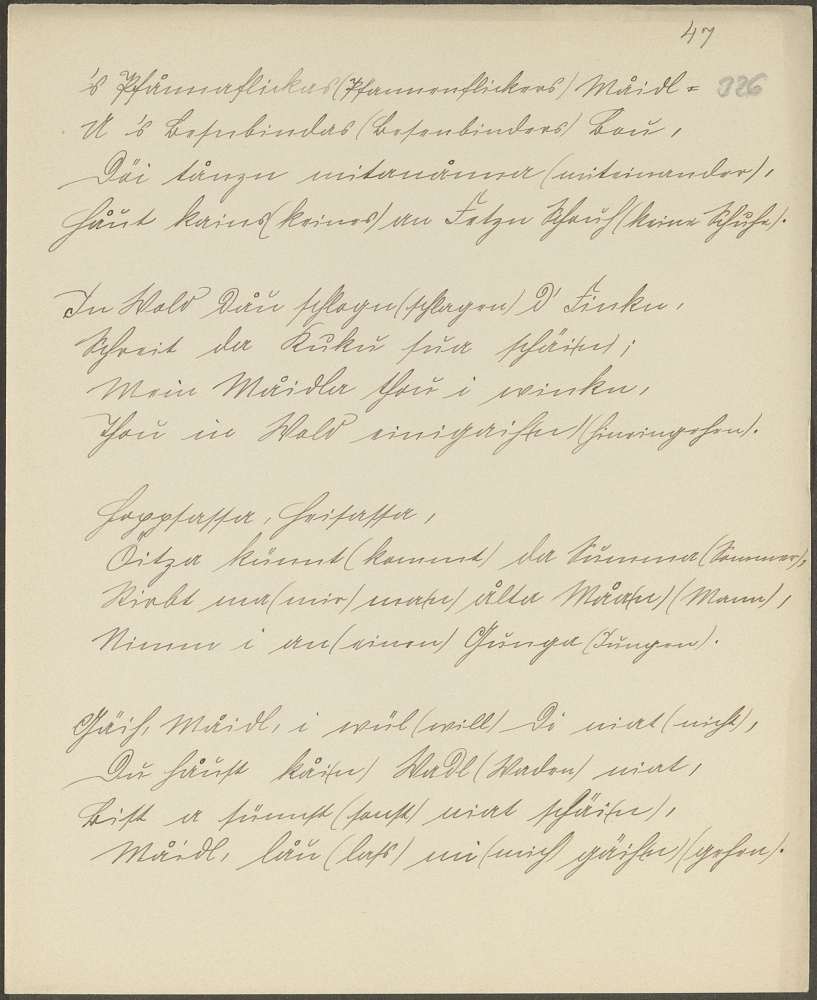 47
's Pfånnaflickas (Pfannenflickers) Måidl = 326
U 's Besnbindas (Besenbinders) Bou,
Döi tånzn mitanånna (miteinander),
Håut kains (keines) an Fetzn Schouh (keine Schuhe).
In Wold dåu schlogn (schlagen) d' Finkn,
Schreit da Kuku sua schäi(n);
Mein Måidla thou i winkn,
Thou in Wold einigaih(n) (hineingehen).
Hoppsassa, heisassa,
Öitza kümmt (kommt) da Summa (Sommer),
Stirbt ma (mir) ma(n) ålta Måa(n) (Mann),
Nimm i an (einen) Gunga (Jungen).
Gäih, Måidl, i wül (will) di niat (nicht),
Du håust kåi(n) Wadl (Waden) niat,
Bist a sünnst (sonst) niat schäi(n),
Måidl, låu (laß) mi (mich) gäih(n) (gehen).